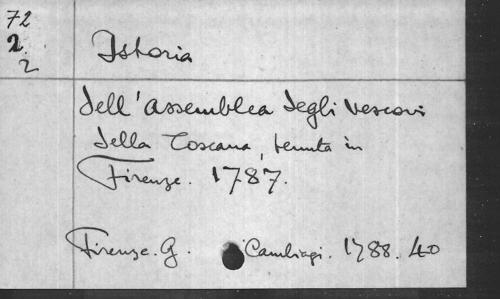 72
2
2
Istoria
dell'assemblea degli vescovi
della Toscana, tenuta in
Firenze. 1787.
Firenze. G. Cambiagi. 1788. 4o